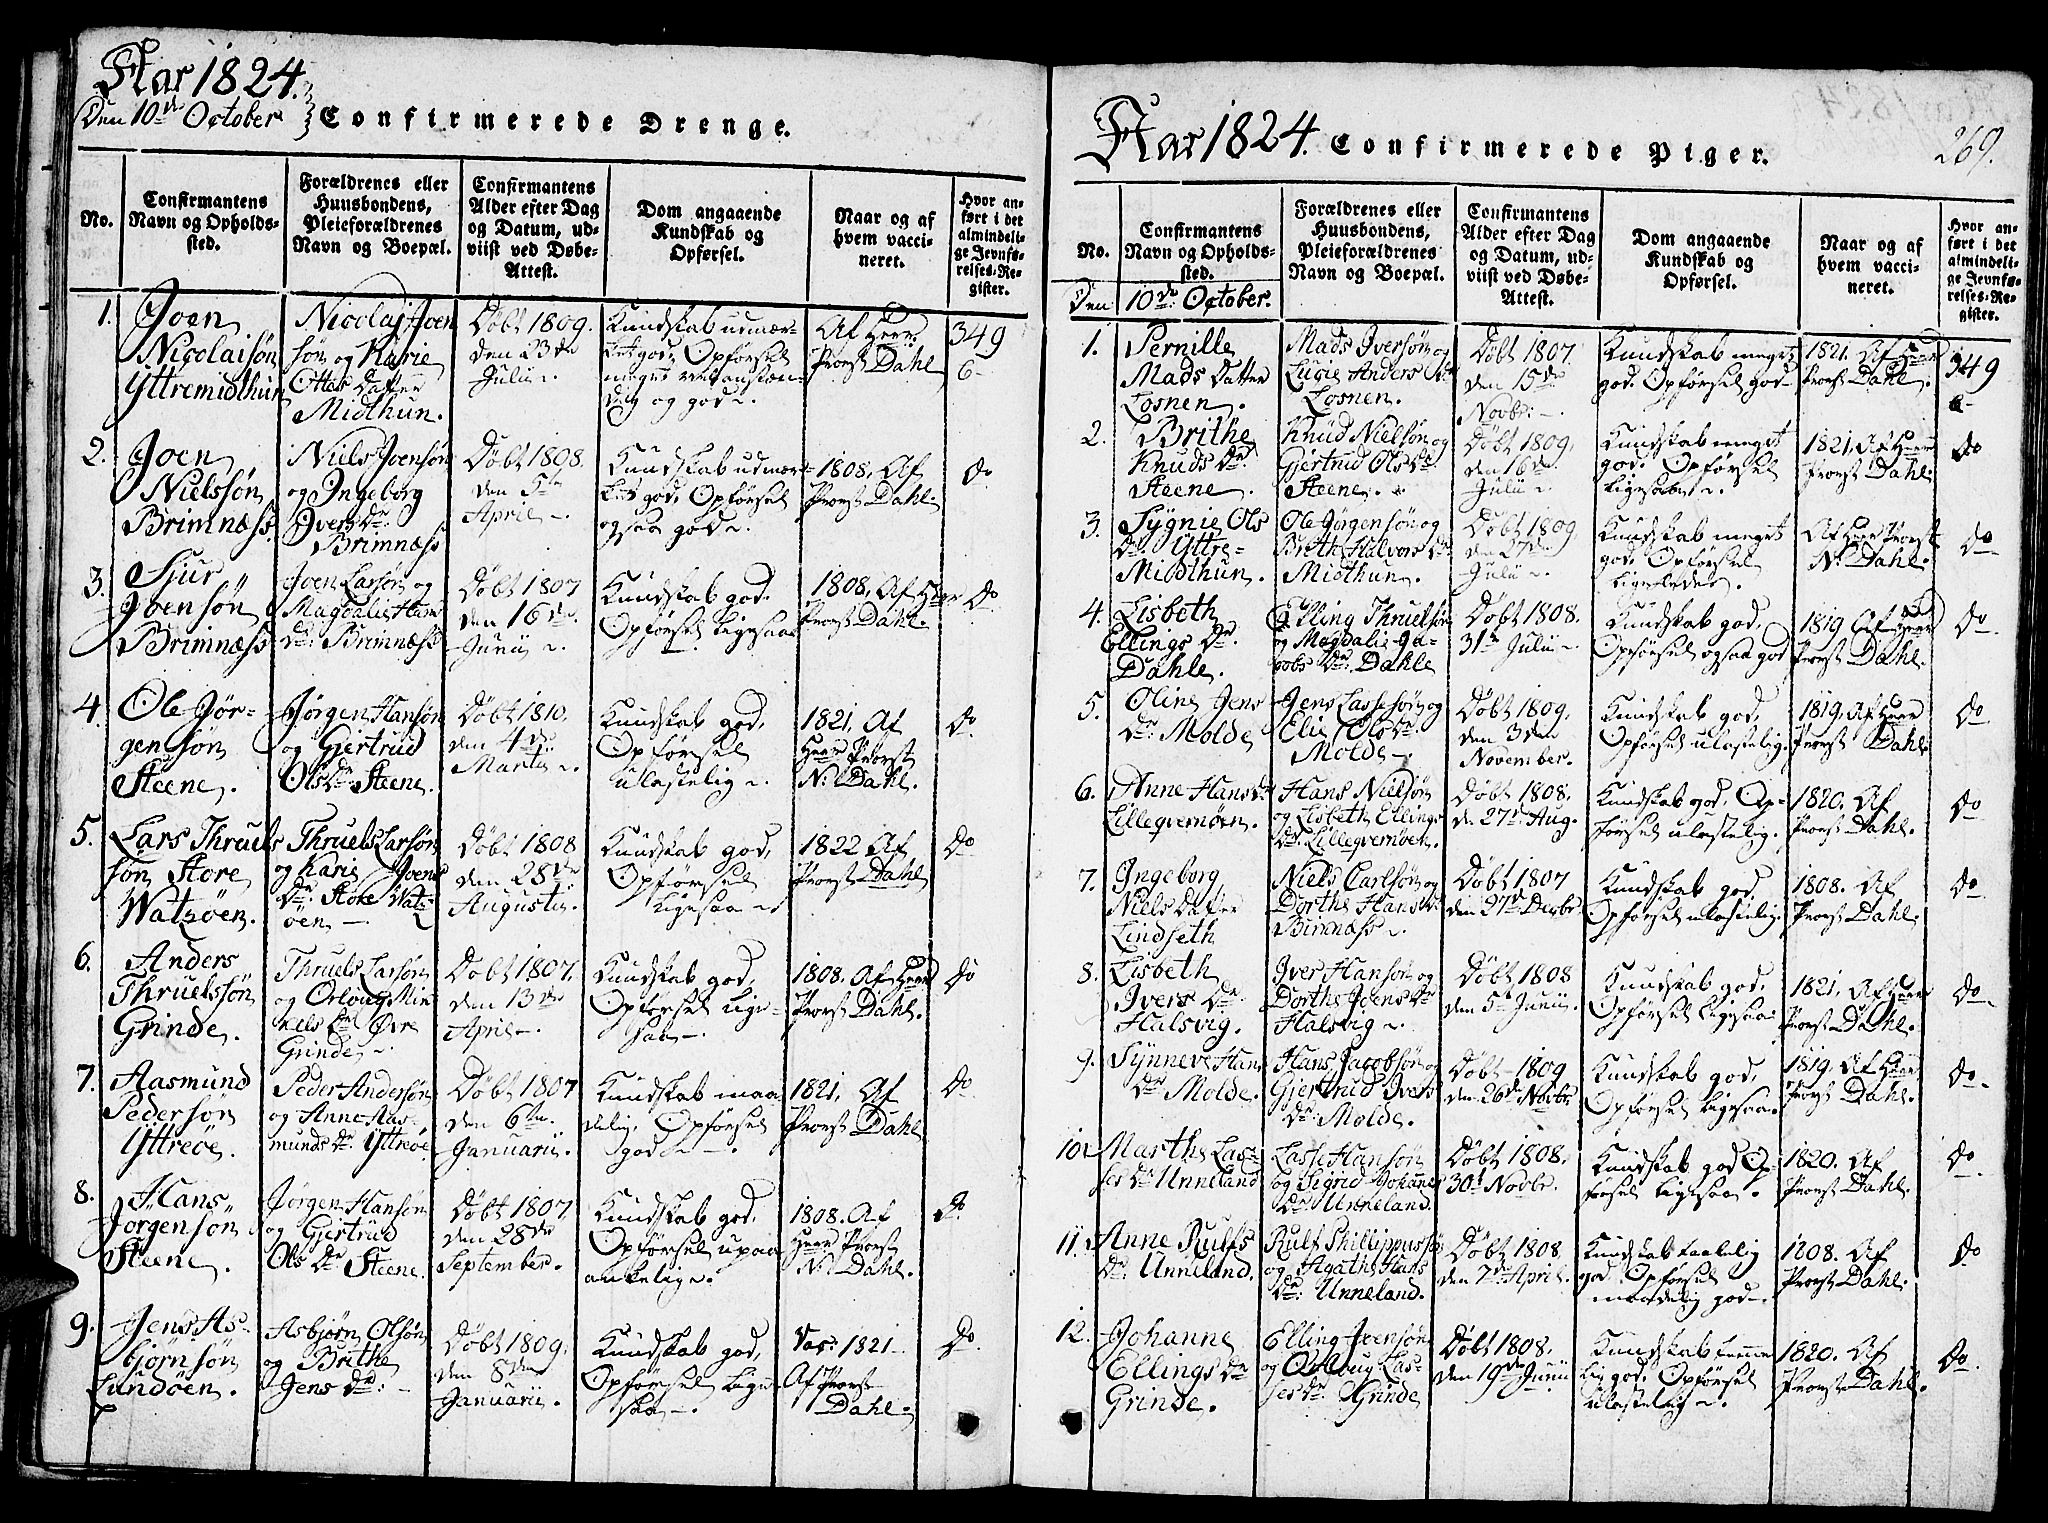 Aar 1824.
Den 10de October
Confirmerede Drenge.
No.
Confirmantens
Navn og Opholds-
sted.
Forældrenes eller
Huusbondens,
Pleieforældrenes
Navn og Boepæl.
Confirmantens
Alder efter Dag
og Datum, ud-
viist ved Døbe-
Attest.
Dom angaaende
Kundskab og
Opførsel.
Naar og af
hvem vacci-
neret.
Hvor an-
ført i det
almindeli-
ge Jevnfø-
relses-Re-
gister.
1.
Joen
Nicolaisøn
Yttremidthun
Nicolaj Joen
søn og Karie
Ottes Datter
Midthun.
Døbt 1809.
den 23de
Julii
Kundskab udmær-
ket god, Opførsel
meget vel anstæn-
dig og god
Af Herr
Provst Dahl
349
6
2.
Joen
Nielssøn
Brimnæss
Niels Joensøn
og Ingeborg
Ivers Dr.
Brimnæss
Døbt 1808.
den 5te
April
Kundskab udmær-
ket god. Opførsel
ogsaa god
1808. Af
Provst Dahl.
Do
3.
Sjur
Joensøn
Brimnæss
Joen Larsøn og
Magdalie Hans
Dr. Brimnæss
Døbt 1807
den 16de
Junii
Kundskab god.
Opførsel ligesaa
1808, Af Herr
Provst Dahl.
Do
4.
Ole Jør-
gensøn
Steene.
Jørgen Hansøn
og Gjertrud
Ols Dr Steene.
Døbt 1810.
den 4de
Martii
Kundskab god,
Opførsel
ulastelig
1821. Af
Herr Provst
N. Dahl.
Do
5.
Lars Thruels
søn Store
Watsøen.
Thruels Larsøn
og Karie Joens
Dr. Store Wats
øen
Døbt 1808
den 28de
Augusti.
Kundskab god,
Opførsel
ligesaa
1822 Af
Provst Dahl
Do
6.
Anders
Thruelssøn
Grinde.
Thruels Larsøn
og Orloug Mik
kels Dr Øvre
Grinde
Døbt 1807.
den 13de
April
Kundskab god,
Opførsel lige-
saa
1808. Af Herr
Provst Dahl.
Do
7.
Aasmund
Pedersøn
Yttreøe.
Peder Andersøn
og Anne Aas-
munds Dr Yttreøe
Døbt 1807
den 6te
Januarii.
Kundskab maa
delig, Opførsel
god
1821. Af
Provst Dahl
Do
8.
Hans
Jørgensøn
Steene.
Jørgen Hansøn
og Gjertrud
Ols Dr Steene.
Døbt 1807
den 28de
September.
Kundskab god,
Opførsel upaa
ankelig.
1808. Af
Herr Provst
N. Dahl.
Do
9.
Jens As-
bjørnsøn
Lundøen.
Asbjørn Olsøn
og Brithe
Jens Dr.
Døbt 1809.
den 8de
Januarii.
Kundskab god,
Opførsel lige
saa
Vac. 1821
Af Provst
Dahl.
Do
Aar 1824. Confirmerede Piger.
269.
No.
Confirmantens
Navn og Opholds-
sted.
Forældrenes eller
Huusbondens,
Pleieforældrenes
Navn og Boepæl.
Confirmantens
Alder efter Dag
og Datum, ud-
viist ved Døbe-
Attest.
Dom angaaende
Kundskab og
Opførsel.
Naar og af
hvem vacci-
neret.
Hvor an-
ført i det
almindeli-
ge Jevnfø-
relses-Re-
gister.
Den 10de October.
1.
Pernille
Mads Datter
Losnen.
Mads Iversøn og
Lucie Anders Dr
Losnen.
Døbt 1807.
den 15de
Novbr.
Kundskab meget
god. Opførsel god
1821. Af Herr
Provst Dahl.
349
6
2.
Brithe
Knuds Dr
Steene.
Knud Nielsøn og
Gjertrud Ols Dr
Steene.
Døbt 1809.
den 16de
Julii
Kundskab meget
god. Opførsel
ligesaa
1821, Af Herr
Provst Dahl.
Do
3.
Sygnie Ols
Dr. Yttre-
Midthun.
Ole Jørgensøn og
Brith Halvors Dr
Midthun.
Døbt 1809
den 27de
Julii
Kundskab meget
god. Opførsel
ligeledes.
Af Herr Provst
N. Dahl.
Do
4.
Lisbeth
Ellings Dr.
Dahle.
Elling Thruelsøn
og Magdalie Ja-
cobs Dr. Dahle
Døbt 1808.
31te Julii
Kundskab god,
Opførsel ogsaa god
1819 Af Herr
Provst Dahl.
Do
5.
Oline Jens
Dr. Molde
Jens Lassesøn og
Elie Ols Dr.
Molde
Døbt 1809.
den 3den
November.
Kundskab god,
Opførsel ulastelig.
1819. Af Herr
Provst Dahl.
Do
6.
Anne Hans Dr
Lilleqvernøen.
Hans Nielsøn
og Lisbeth Ellings
Dr. Lilleqvernøen.
Døbt 1808.
de 27de Aug.
Kundskab god, Op-
førsel ulastelig.
1820. Af
Provst Dahl.
Do
7.
Ingeborg
Niels Datter
Lindseth
Niels Carlsøn og
Dorthe Hans Dr
Brimnæss
Døbt 1807
den 27de Decbr.
Kundskab god,
Opførsel ulastelig.
1808. Af
Provst Dahl.
Do
8.
Lisbeth
Ivers Dr.
Halsvig.
Iver Hansøn og
Dorthe Joens Dr
Halsvig
Døbt 1808
den 5te Junii.
Kundskab god,
Opførsel ligesaa
1821. Af Herr
Provst Dahl.
Do
9.
Synneve Hans
Dr Molde.
Hans Jacobsøn og
Gjertrud Ivers
Dr. Molde.
Døbt 1809
den 26de Novbr
Kundskab god,
Opførsel ligesaa.
1819. Af Herr
Provst Dahl.
Do
10.
Marthe Las-
ses Dr Unneland
Lasse Hansøn
og Sigrid Johannes
Dr. Unneland.
Døbt 1808.
30te Novbr.
Kundskab god Op-
førsel ligesaa.
1820. Af
Provst Dahl.
Do
11.
Anne Rulfs
Dr. Unneland.
Rulf Phillippussøn
og Agathe Hans
Dr. Unneland.
Døbt 1808
den 7de April.
Kundskab taalelig
god. Opførsel
maadelig god.
1808. Af
Provst Dahl.
Do
12.
Johanne
Ellings Dr
Grinde.
Elling Joensøn
og Orloug Las-
ses Dr. Grinde
Døbt 1808.
den 19de Junii
Kundskab temme
lig god. Opførsel
ulastelig
1820. Af
Provst Dahl.
Do